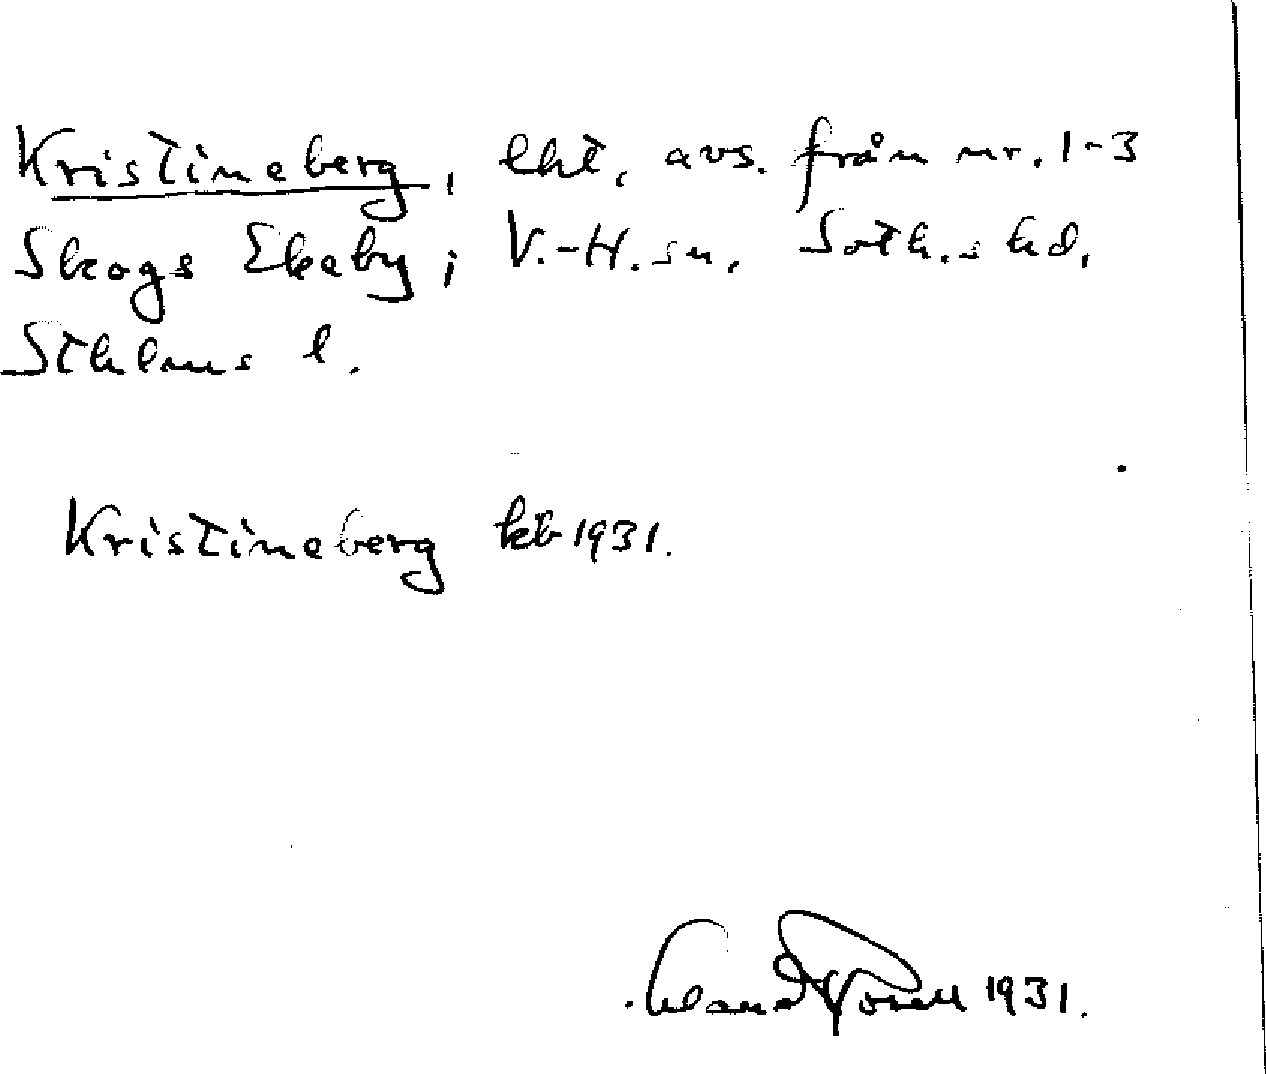 Kristineberg, lht, avs. från nr. 1-3
Skogs Ekeby, i V.-H. sn, Soth.s hd,
Sthlms l.
Kristineberg kb 1931.
1931.